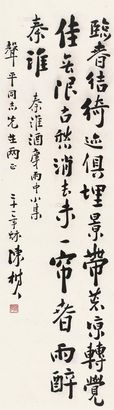 臨春結綺迹俱埋景帶荒凉轉覺
佳無限古愁消去未一帘春雨醉
秦淮
秦淮酒雨中小集
聲平同志先生兩正
陳樹人